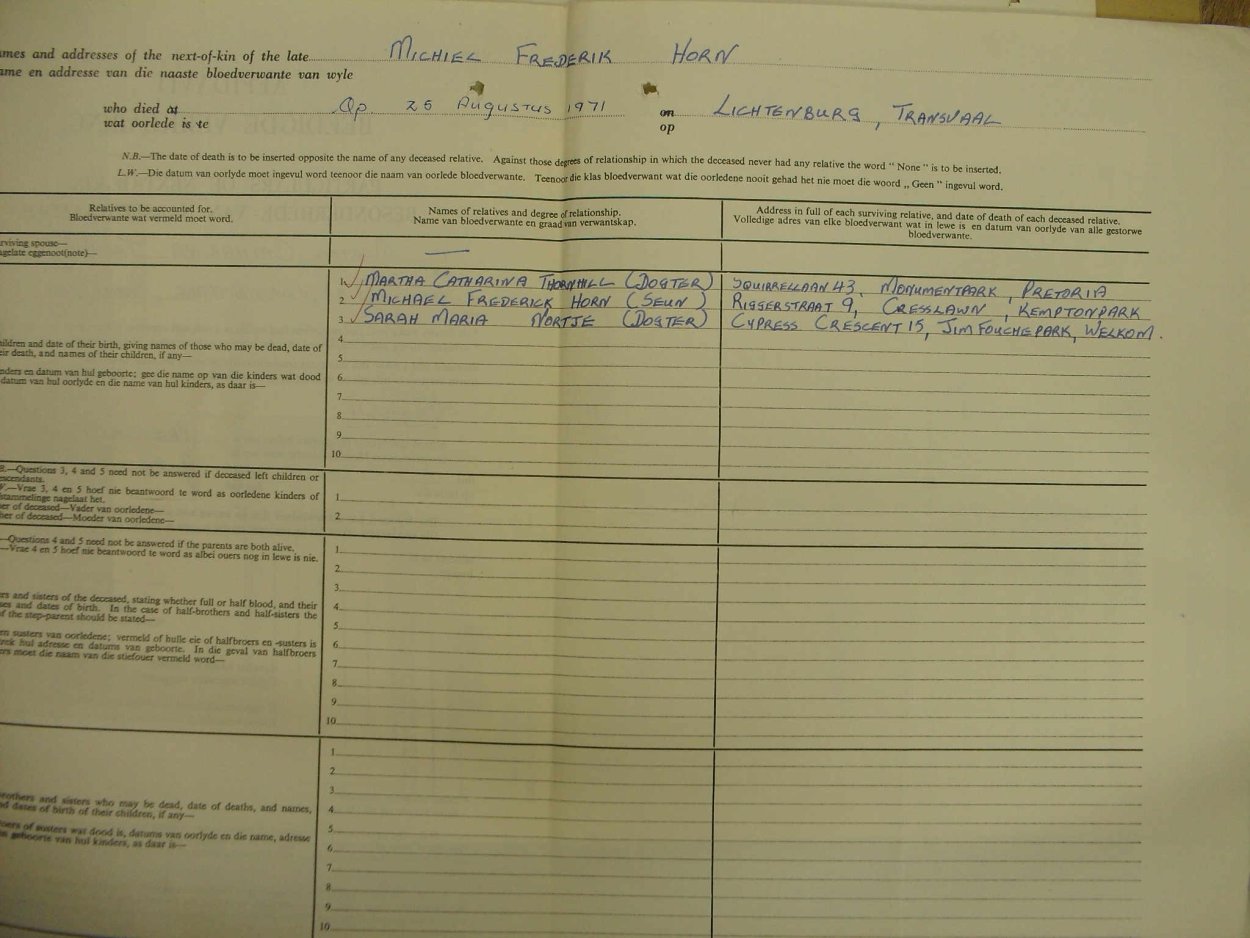 mes and addresses of the next-of-kin of the late MICHIEL FREDERIK HORN
ame en addresse van die naaste bloedverwante van wyle
who died at Op 25 AUGUSTUS 1971 on LICHTENBURG, TRANSVAAL
wat oorlede is te op
N.B.—The date of death is to be inserted opposite the name of any deceased relative. Against those degrees of relationship in which the deceased never had any relative the word " None " is to be inserted.
L.W.—Die datum van oorlyde moet ingevul word teenoor die naam van oorlede bloedverwante. Teenoor die klas bloedverwant wat die oorledene nooit gehad het nie moet die woord „ Geen " ingevul word.
Relatives to be accounted for.
Bloedverwante wat vermeld moet word.
Names of relatives and degree of relationship.
Name van bloedverwante en graad van verwantskap.
Address in full of each surviving relative, and date of death of each deceased relative.
Volledige adres van elke bloedverwant wat in lewe is en datum van oorlyde van alle gestorwe
bloedverwante.
rviving spouse—
agelate eggenoot(note)—
—
1. MARTHA CATHARINA THORNHILL (DOGTER) SQUIRRELLAAN 43, MONUMENTPARK, PRETORIA
2. MICHAEL FREDERICK HORN (SEUN) RIGGERSTRAAT 9, CRESSLAWN, KEMPTONPARK
3. SARAH MARIA NORTJE (DOGTER) CYPRESS CRESCENT 15, JIM FOUCHEPARK, WELKOM.
ildren and date of their birth, giving names of those who may be dead, date of
eir death, and names of their children, if any—
nders en datum van hul geboorte; gee die name op van die kinders wat dood
datum van hul oorlyde en die name van hul kinders, as daar is—
4
5
6
7
8
9
10
B.—Questions 3, 4 and 5 need not be answered if deceased left children or
escendants.
V.—Vrae 3, 4 en 5 hoef nie beantwoord te word as oorledene kinders of
fstammelinge nagelaat het.
her of deceased—Vader van oorledene—
her of deceased—Moeder van oorledene—
1
2
—Questions 4 and 5 need not be answered if the parents are both alive.
—Vrae 4 en 5 hoef nie beantwoord te word as albei ouers nog in lewe is nie.
ers and sisters of the deceased, stating whether full or half blood, and their
ses and dates of birth. In the case of half-brothers and half-sisters the
of the step-parent should be stated—
en susters van oorledene; vermeld of hulle eie of halfbroers en -susters is
trek hul adresse en datums van geboorte. In die geval van halfbroers
ers moet die naam van die stiefouer vermeld word—
1
2
3
4
5
6
7
8
9
10
brothers and sisters who may be dead, date of deaths, and names,
nd dates of birth of their children, if any—
oers of susters wat dood is, datums van oorlyde en die name, adresse
n geboorte van hul kinders, as daar is—
1
2
3
4
5
6
7
8
9
10